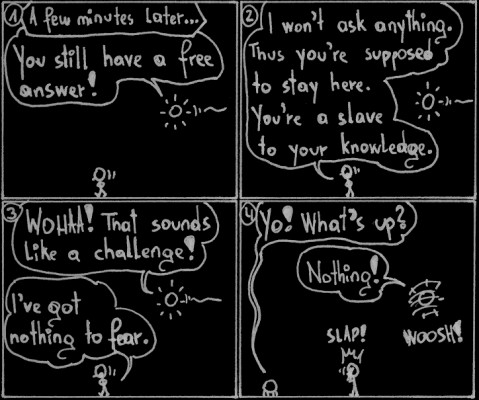 1 A few minutes later...
You still have a free
answer!
2 I won't ask anything.
Thus you're supposed
to stay here.
You're a slave
to your knowledge.
3 WOHHA! That sounds
like a challenge!
I've got
nothing to fear.
4 Yo! What's up?
Nothing!
SLAP!
WOOSH!